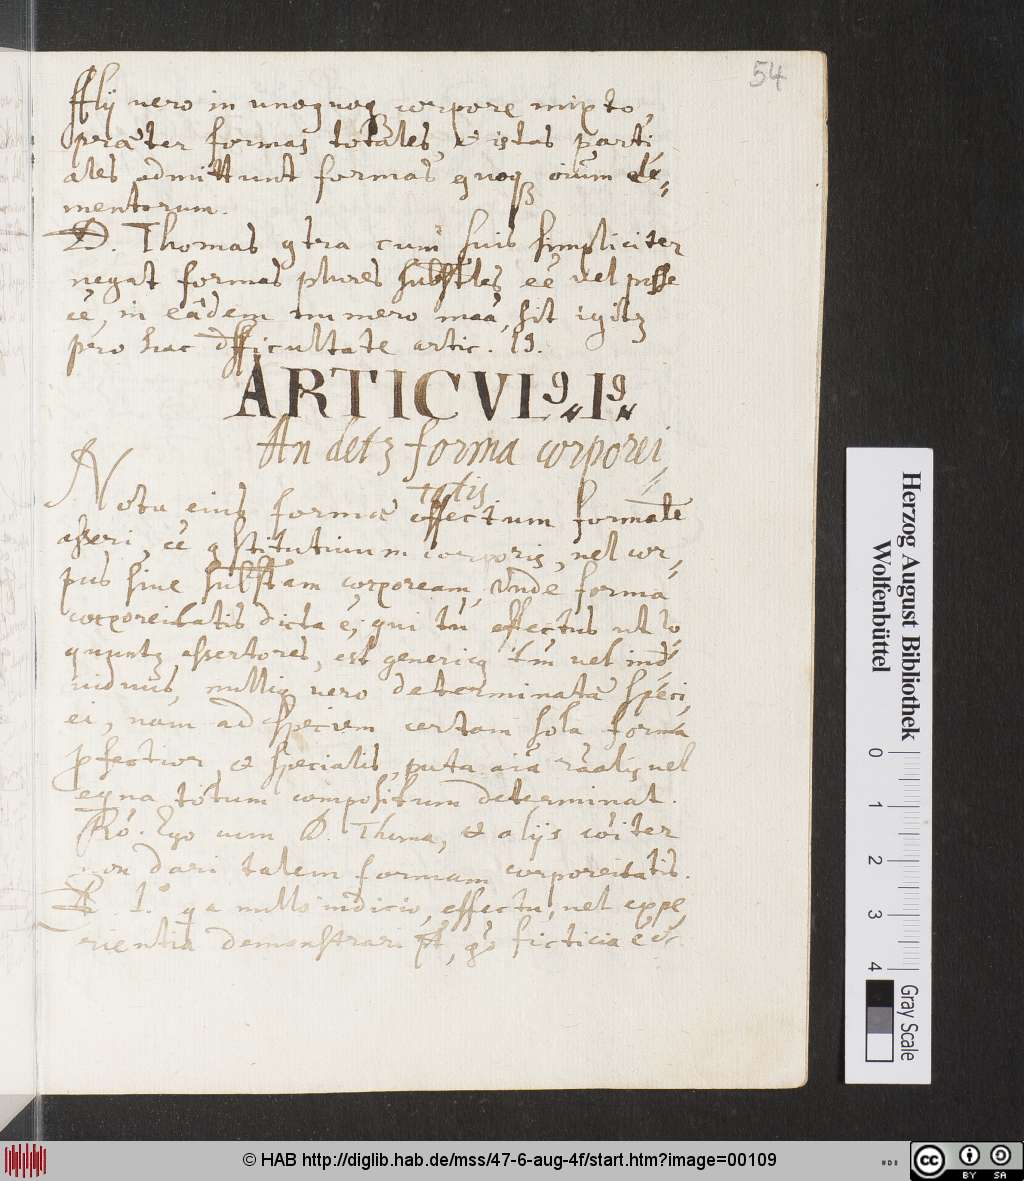 54
Alij uero in unoquoq corpore mixto,
præter formas totales, & istas parti
ales admittunt formas quoq oium ele,,
mentorum.
D. Thomas 9tra cum suis simpliciter
negat formas plures subst̄les eē uel posse
eē, in eâdem numero maā, sit igitꝫ
pro hac difficultate artic. 19.
ARTICVL9,, I9,,
An detꝫ forma corporei,,
tatis
Nota eius formæ effectum formalē
asseri, eē 9stitutiuum corporis, uel cor,,
pus siue subst̄am corpoream, Vnde forma
corporeitatis dicta ē, qui tn̄ effectus ut lo
quuntꝫ assertores, est genericq tm̄ uel indi
uiduus, nullig uero determinatæ speci,
ei, nam ad speciem certam sola forma
pfectior, & specialis, puta aīa rāalis uel
eqna totum compositum determinat.
Rō. Ego cum D. Thoma, & alijs cōiter
non dari talem formam corporeitatis.
R. 1.° qa nullo indicio, effectu, uel expe,
rientiâ demonstrari pt̄, g° ficticia ē &c.
Herzog August Bibliothek
Wolfenbüttel
0 1 2 3 4
Gray Scale
© HAB http://diglib.hab.de/mss/47-6-aug-4f/start.htm?image=00109
cc BY SA